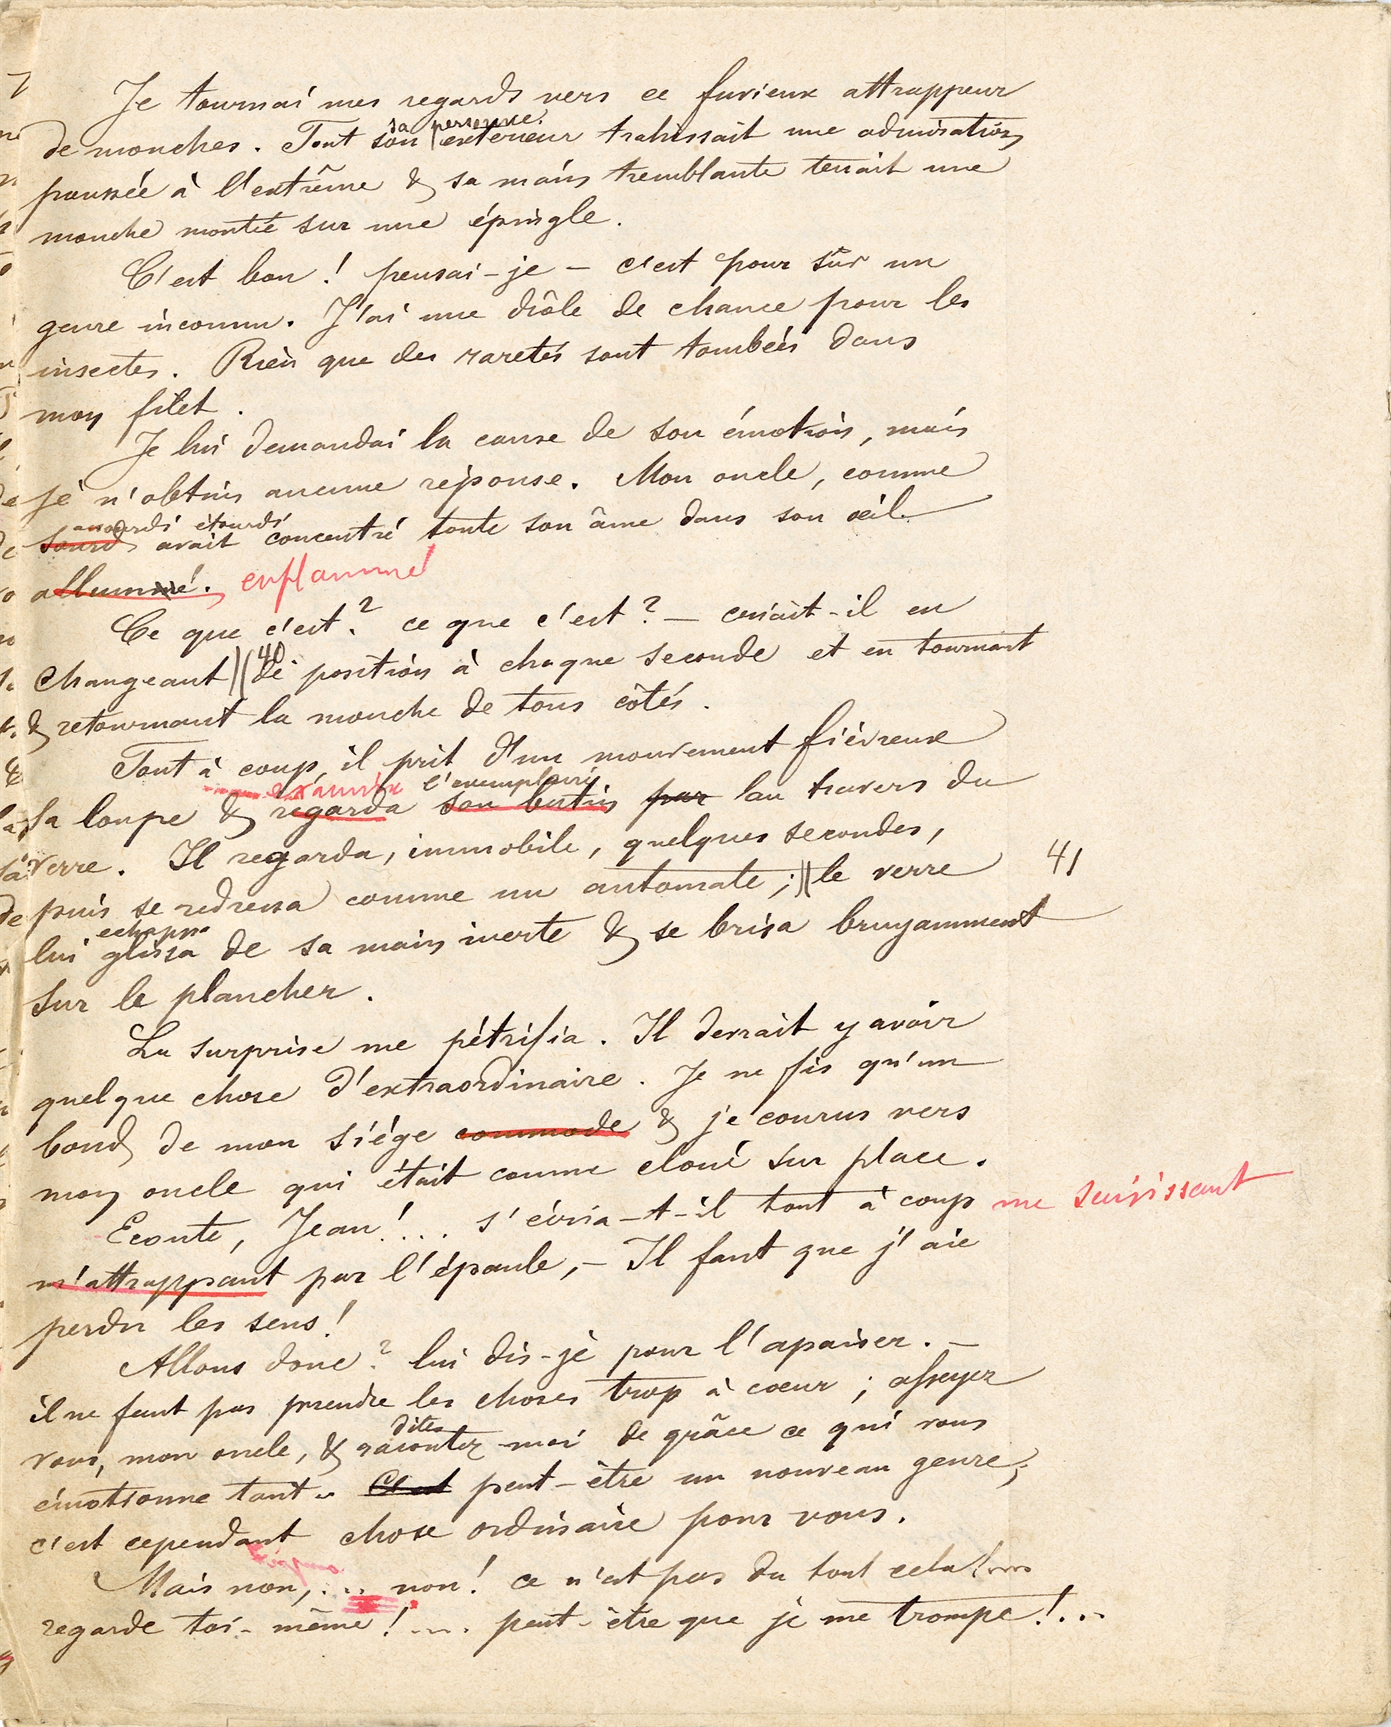 Je tournai mes regards vers ce furieux attrappeur
sa personne
de mouches. Tout son extérieur trahissait une admiration
poussée à l'extrême & sa main tremblante tenait une
mouche montée sur une épingle.
C'est bon! pensai-je – c'est pour sûr un
genre inconnu. J'ai une drôle de chance pour les
insectes. Rien que des raretés sont tombées dans
mon filet.
Je lui demandai la cause de son émotion, mais
je n'obtins aucune réponse. Mon oncle, comme
assourdi étourdi
sourd avait concentré toute son âme dans son œil
allumé. enflammé
Ce que c'est? ce que c'est? – criait-il en
40
changeant de position à chaque seconde et en tournant
& retournant la mouche de tous côtés.
Tout à coup, il prit d'un mouvement fiévreux
examina l'exemplaire
sa loupe & regarda son butin par au travers du
verre. Il regarda, immobile, quelques secondes,
puis se redressa comme un automate; le verre 41
echappa
lui glissa de sa main inerte & se brisa bruyamment
sur le plancher.
La surprise me pétrifia. Il devait y avoir
quelque chose d'extraordinaire. Je ne fis qu'un
bond de mon siège commode & je courus vers
mon oncle qui était comme cloué sur place.
Ecoute, Jean!... s'écria-t-il tout à coup me saisissant
m'attrappant par l'épaule, – Il faut que j'aie
perdu les sens!
Allons donc? lui dis-je pour l'apaiser. –
il ne faut pas prendre les choses trop à cœur; asseyez
dites
vous, mon oncle, & racontez-moi de grâce ce qui vous
émotionne tant. C'est peut-être un nouveau genre;
c'est cependant chose ordinaire pour vous.
Mais non,... non! ce n'est pas du tout cela!...
regarde toi-même!.... peut-être que je me trompe!...